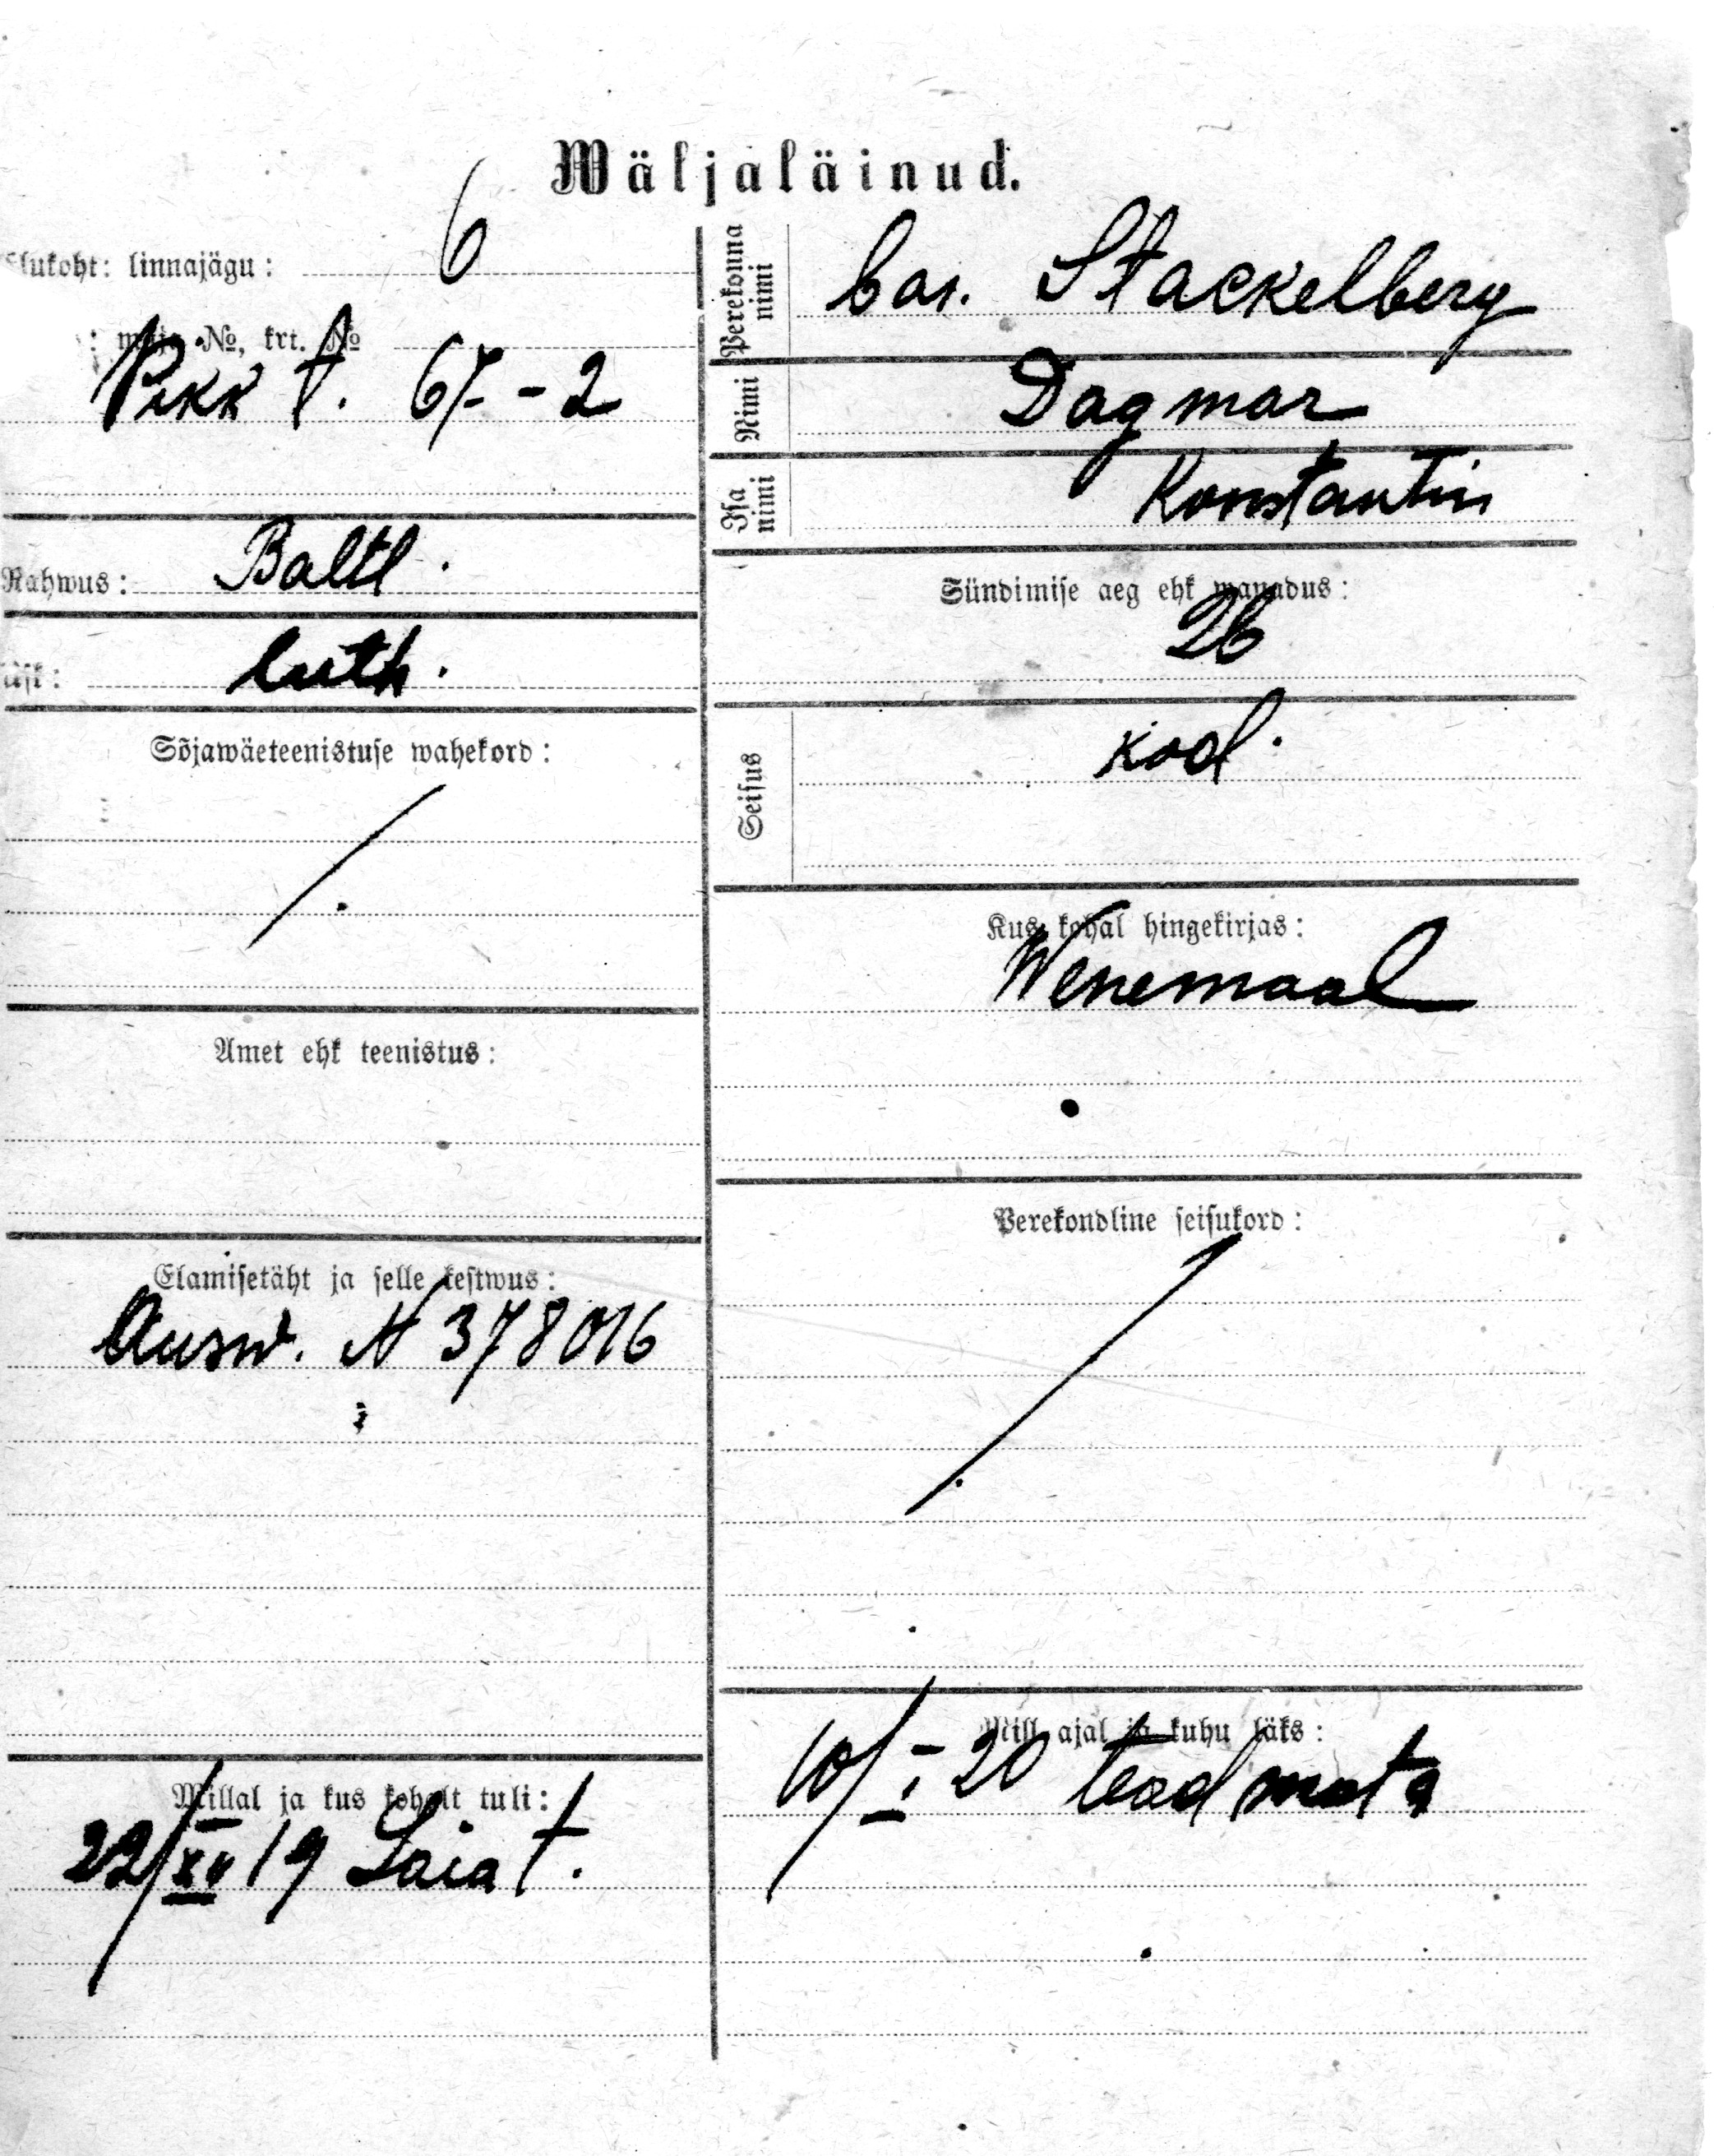 Wäljaläinud.
Elukoht: linnajägu: 6
: maja No, krt. No
Pikk t. 67 - 2
Rahwus: Baltl.
Usk: luth.
Sõjawäeteenistuse wahekord:
Amet ehk teenistus:
Elamisetäht ja selle kestwus:
Ausw. N 378016
Millal ja kus kohalt tuli:
22/XII 19 Laia t.
Perekonna nimi
bar. Stackelberg
Nimi
Dagmar
Isa nimi
Konstantin
Sündimise aeg ehk wanadus:
26
Seisus
kod.
Kus kohal hingekirjas:
Wenemaal
Perekondline seisukord:
Mill ajal ja kuhu läks:
10/I 20 teadmata